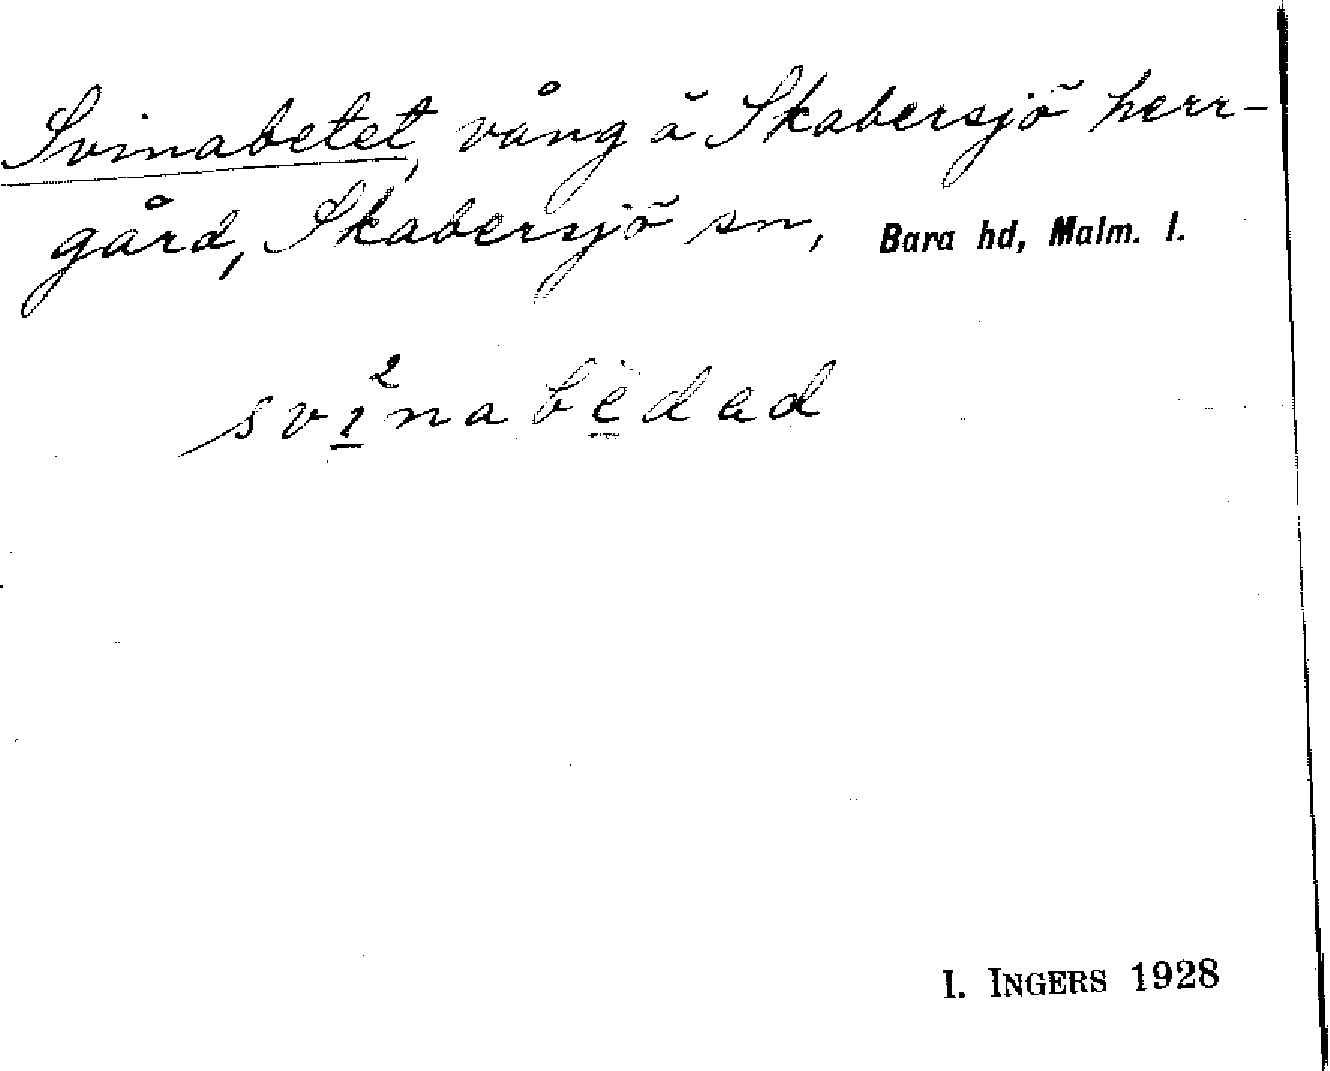 Svinabetet, vång å Skabersjö herr-
gård, Skabersjö sn, Bara hd, Malm. l.
svi²nabèdad
I. INGERS 1928